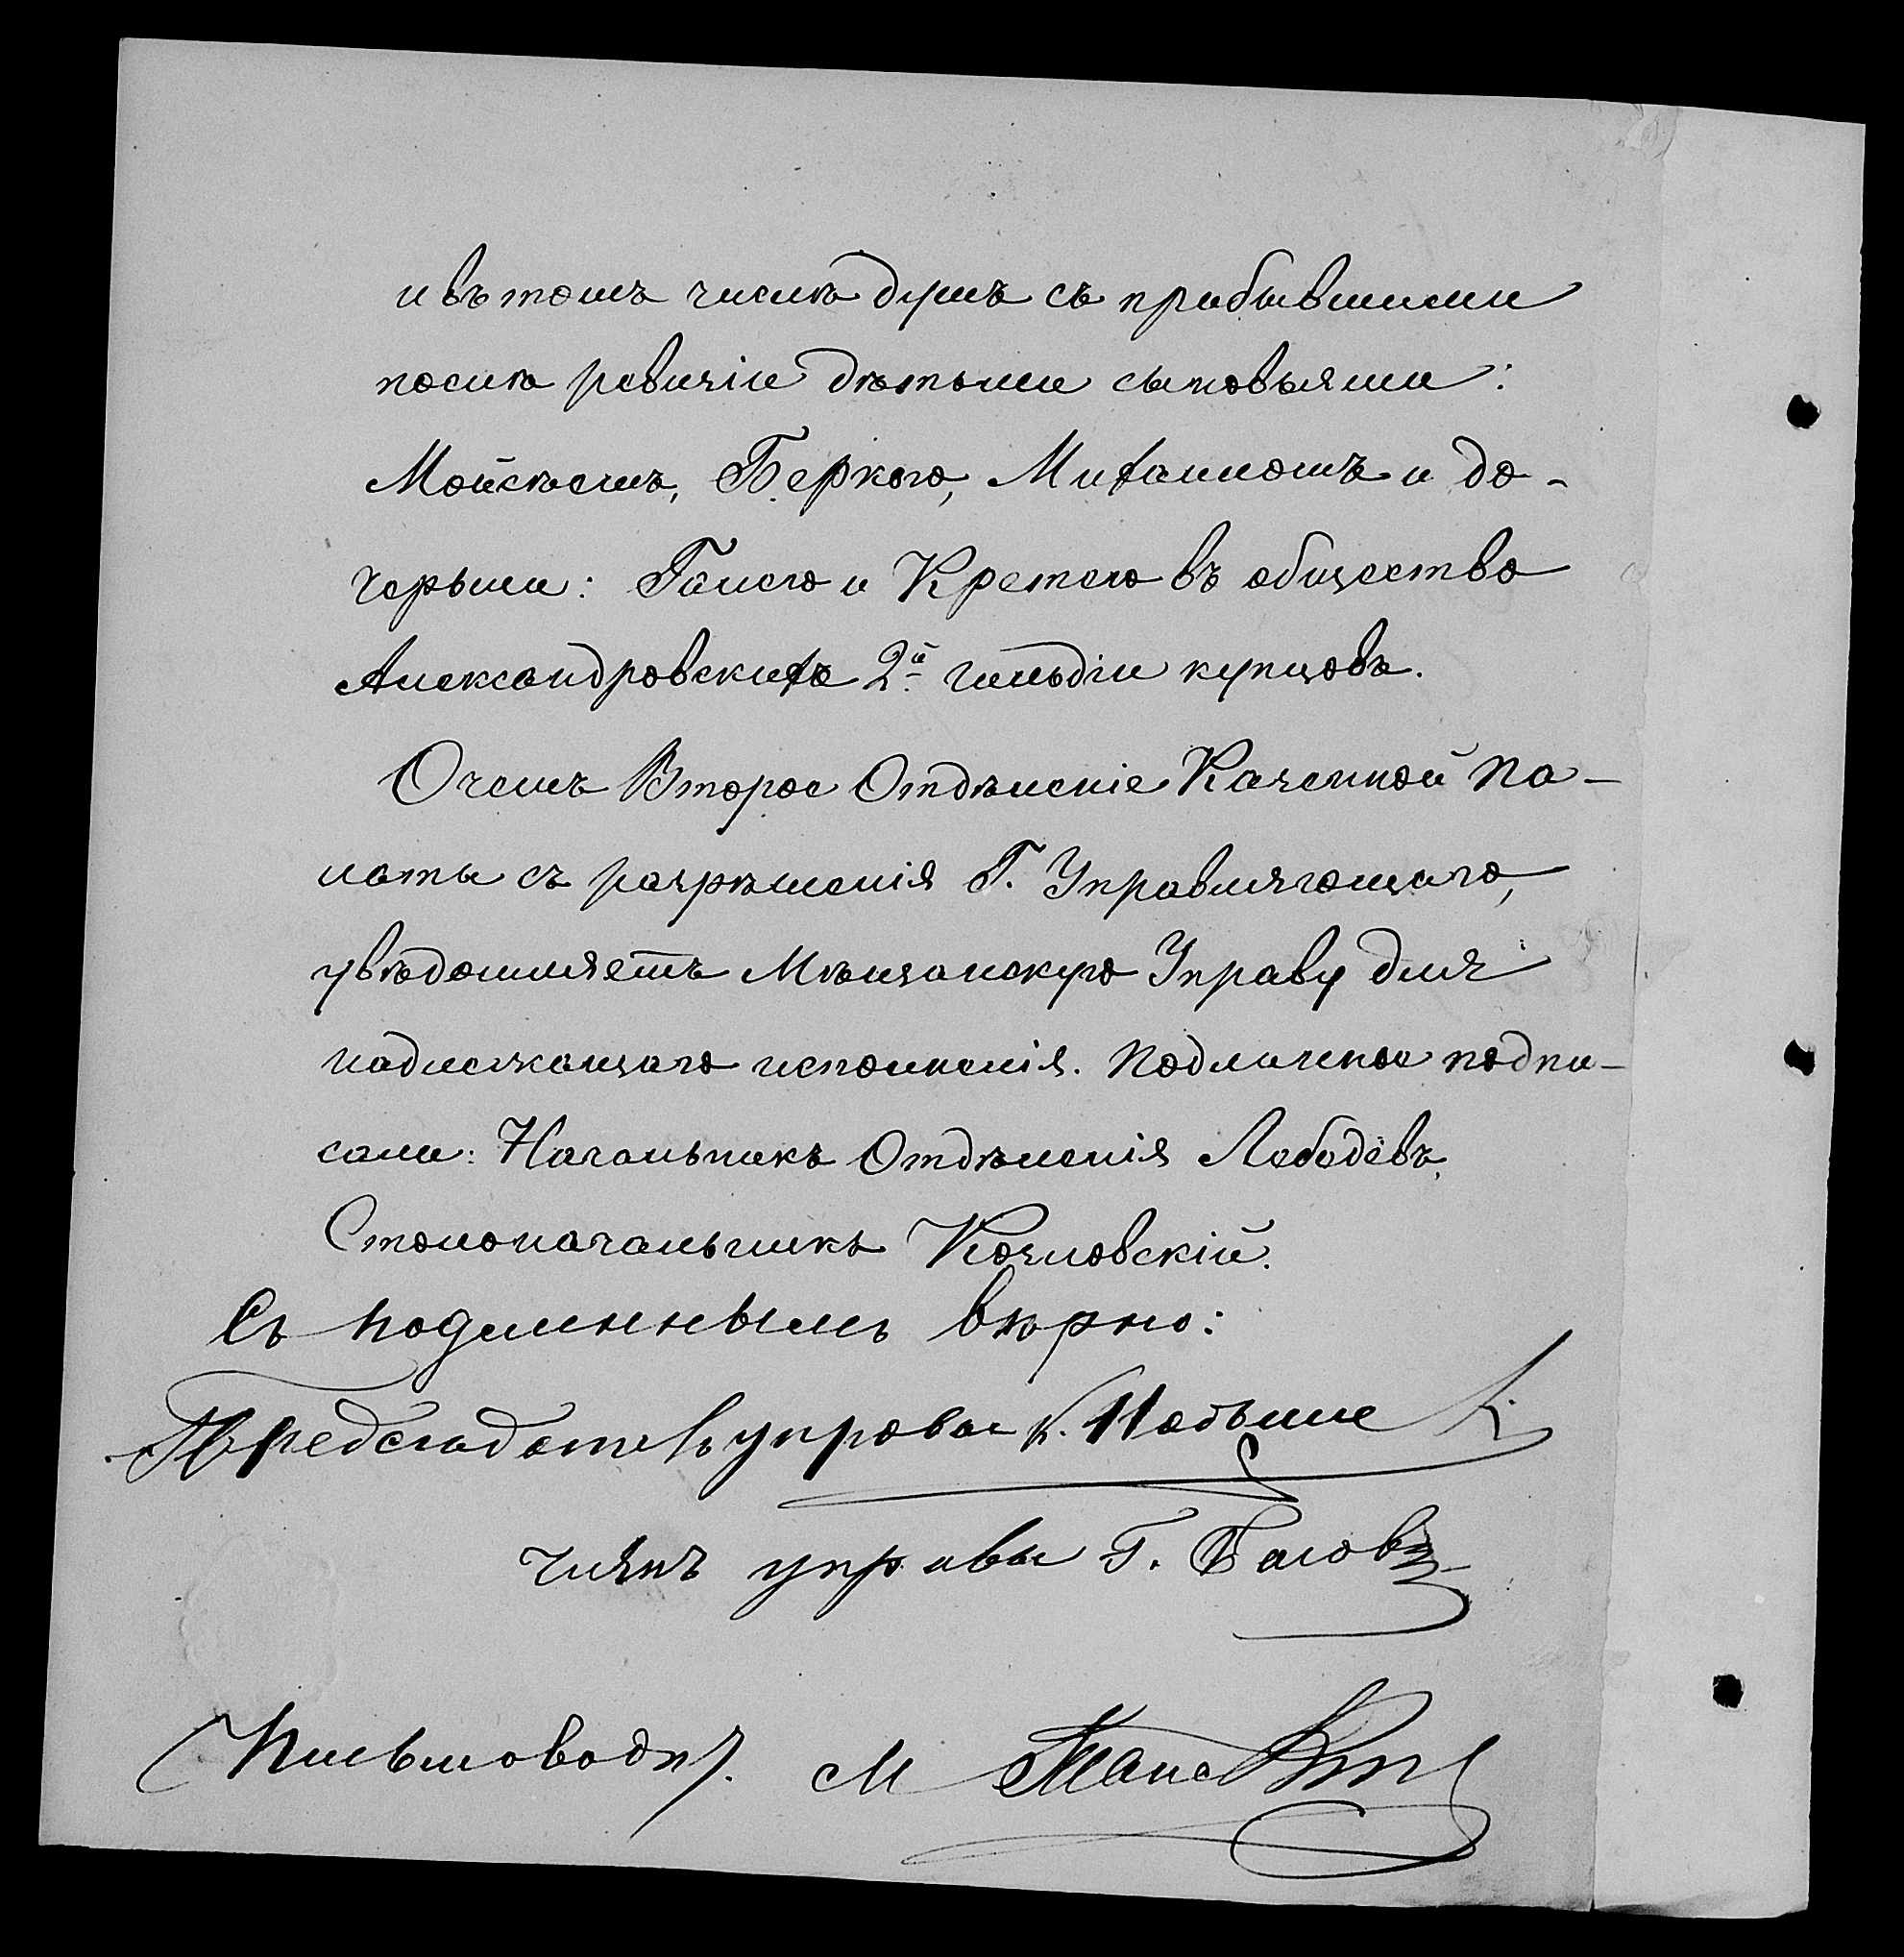 и въ томъ числѣ душъ съ прибывшими
послѣ ревизіи дѣтьми сыновьями:
Мойсѣемъ, Беркою, Михаиломъ и до-
черьми: Ганею и Крететою въ общество
Александровскихъ 2й гильдіи купцовъ.
О чемъ Второе Отдѣленіе Казенной Па-
латы съ разрѣшенія Г. Управляющаго,
увѣдомляетъ Мѣщанскую Управу для
надлежащаго исполненія. Подлинное подпи-
сали: Начальникъ Отдѣленія Лебедевъ,
Столоначальникъ Козловскій.
Съ подлиннымъ вѣрно:
Предсѣдатель управы
Членъ управы Г.
Письмоводит. М